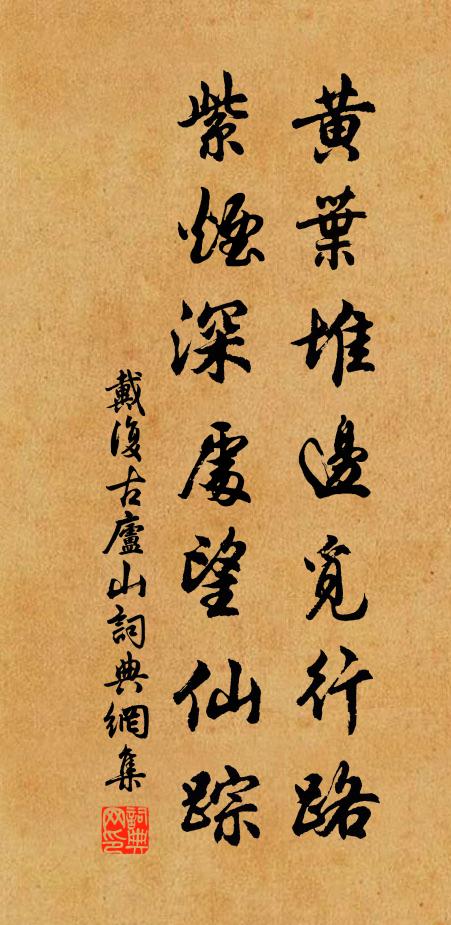 黃葉堆邊覓行路
紫煙深處望仙踪
戴復古廬山詞典網集
詞典網印